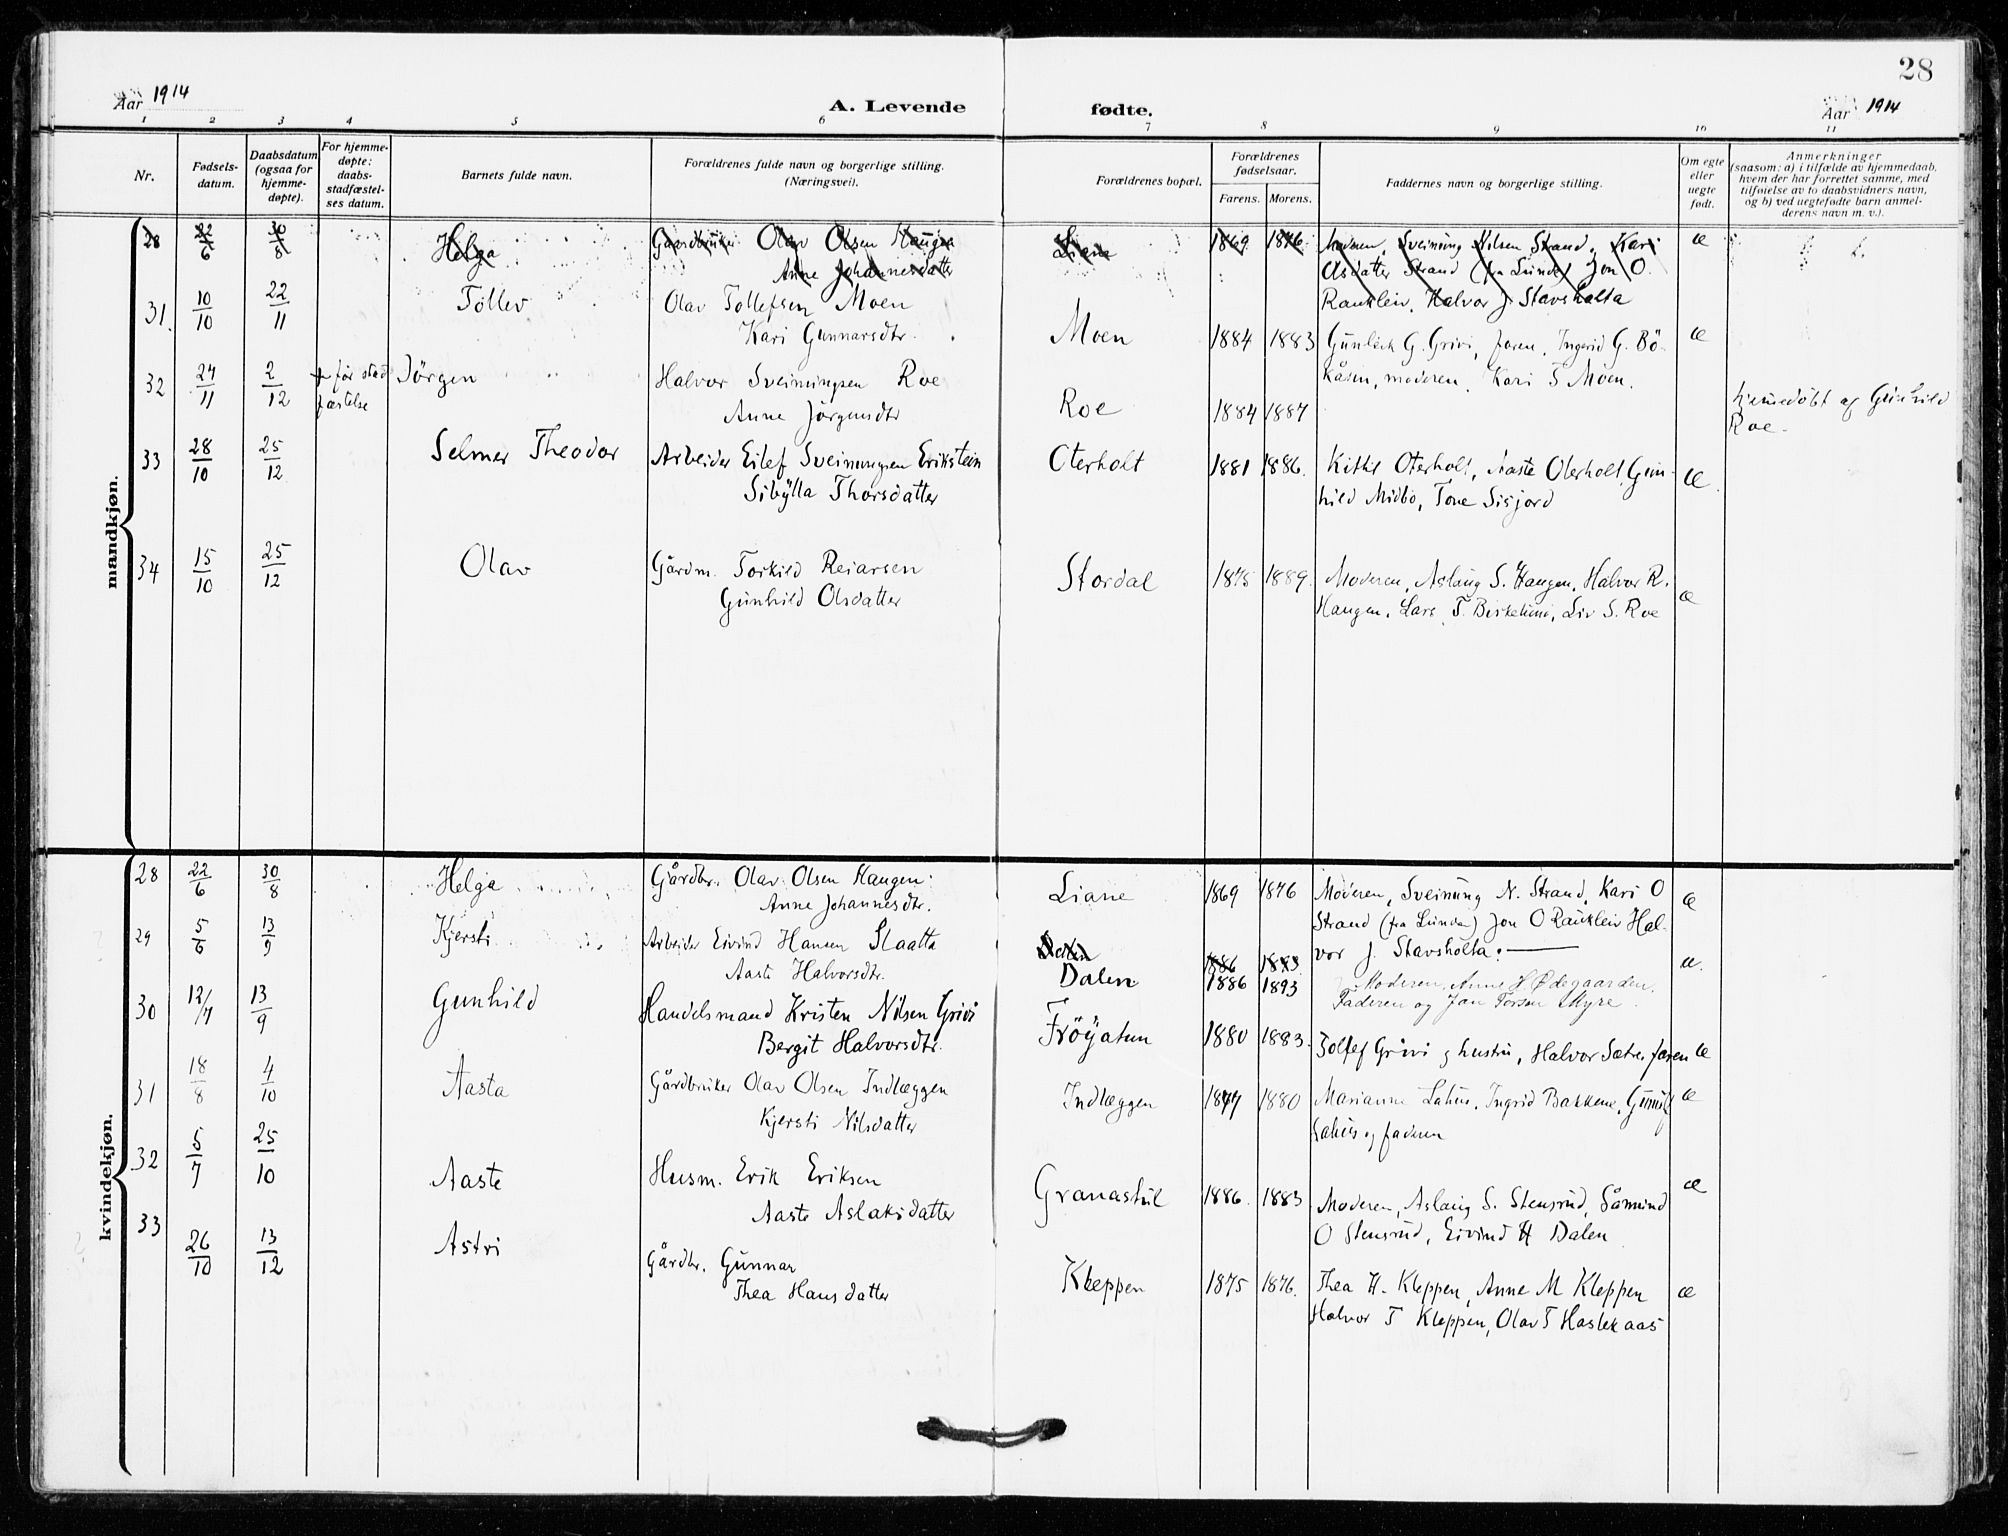 28
Aar 1914
A. Levende fødte.
Aar 1914
1 2 3 4 5 6 7 8 9 10 11
Nr.
Fødsels-
datum.
Daabsdatum
(ogsaa for
hjemme-
døpte).
For hjemme-
døpte:
daabs-
stadfæstel-
ses datum.
Barnets fulde navn.
Forældrenes fulde navn og borgerlige stilling.
(Næringsvei).
Forældrenes bopæl.
Forældrenes
fødselsaar.
Farens. Morens.
Faddernes navn og borgerlige stilling.
Om egte
eller
uegte
født.
Anmerkninger
(saasom: a) i tilfælde av hjemmedaab,
hvem der har forrettet samme, med
tilføielse av to daabsvidners navn,
og b) ved uegtefødte barn anmel-
derens navn m. v.).
mandkjøn.
28 22/6 30/8 Helga Gaardbruker Olav Olsen Haugen Liane 1869 1876 Moderen, Sveinung Nilsen Strand, Kari æ
Anne Johannesdatter Olsdatter Strand (fra Lunde) Jon O.
Rauklein, Halvor J. Stavsholta
31. 10/10 22/11 Tollev Olav Tollefsen Moen
Kari Gunnarsdtr. Moen 1884 1883 Gunleik G. Grivi, faren, Ingerid G. Bö- æ
kåsin, moderen, Kari T Moen.
32 24/11 2/12 + før stad
fæstelse Jörgen Halvor Sveinungsen Roe
Anne Jörgensdtr Roe 1884 1887 hjemmedöbt af Gunhild
Roe.
33 28/10 25/12 Selmer Theodor Arbeider Eilef Sveinungsen Erikstein Oterholt 1881 1886. Kittil Oterholt, Aaste Oterholt, Gun- æ.
Sibylla Thorsdatter hild Midbö, Tone Sisjord
34 15/10 25/12 Olav Gårdm. Torkild Reiarsen Stordal 1875 1889. Moderen, Aslaug S. Haugen, Halvor R. æ
Gunhild Olsdatter Haugen, Lars T. Birkelund, Liv S. Roe
kvindekjøn.
28 22/6 30/8 Helga Gårdbr. Olav Olsen Haugen. Liane 1869 1876 Moderen, Sveinung N. Strand, Kari O æ
Anne Johannesdtr. Strand (fra Lunde) Jon O Rauklein Hal-
vor J. Stavsholta.
29 5/6 13/9 Kjersti Arbeider Eivind Hansen Slaatta 1886 1883
Aaste Halvorsdtr. Dalen 1886 1893 Moderen, Anne H Ødegaarden, æ.
Faderen og Jan Torsen Myre.
30 12/7 13/9 Gunhild Handelsmand Kristen Nilsen Grivi Fröyatun 1880 1883. Tollef Grivi og hustru, Halvor Sætre, faren æ
Bergit Halvorsdtr.
31 18/8 4/10 Aasta Gårdbruker Olav Olsen Indlæggen Indlæggen 1877 1880 Marianne Lahus, Ingrid Bakkene, Gunulf æ
Kjersti Nilsdatter Lahus og faderen
32 5/7 25/10 Aaste Husm. Erik Eriksen Granastul 1886. 1883 Moderen, Aslaug S. Stensrud, Såmund æ
Aaste Aslaksdatter O Stensrud, Eivind H Dalen
33 26/10 13/12 Astri Gårdbr. Gunnar Kleppen 1875 1876. Thea H. Kleppen, Anne M Kleppen æ
Thea Hansdatter Halvor T Kleppen, Olav T Haslekaas